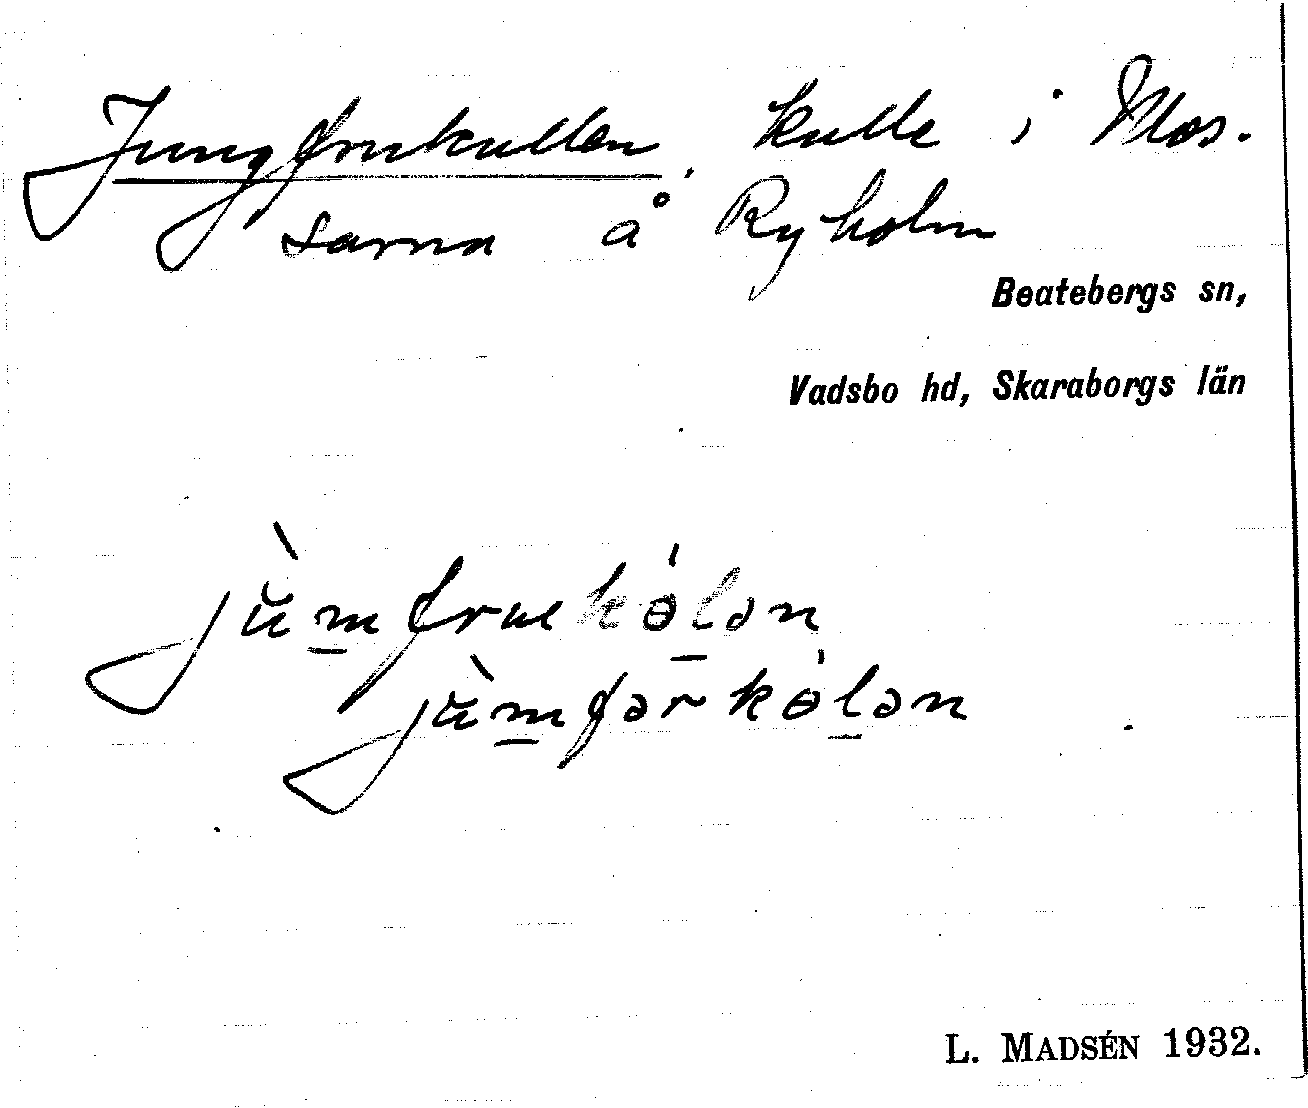 Jungfrukullen, kulle i Mos-
sarna å Ryholm
Beatebergs sn,
Vadsbo hd, Skaraborgs län
jùmfruekɵ́lən
jùmfərkɵ́lən
L. MADSÉN 1932.